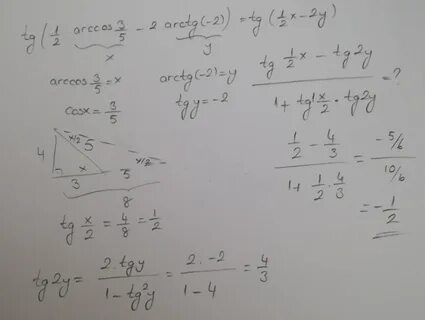 tg(1/2 arccos 3/5 - 2 arctg(-2)) = tg(1/2 x - 2y)
x y
arccos 3/5 = x arctg(-2) = y
cos x = 3/5 tg y = -2
(tg 1/2 x - tg 2y) / (1 + tg 1 x/2 · tg 2y) = ?
x/2 5 x/2
4 x
3 5
8
tg x/2 = 4/8 = 1/2
(1/2 - 4/3) / (1 + 1/2 · 4/3) = (-5/6) / (10/6)
= -1/2
tg 2y = (2 · tg y) / (1 - tg²y) = (2 · -2) / (1 - 4) = 4/3